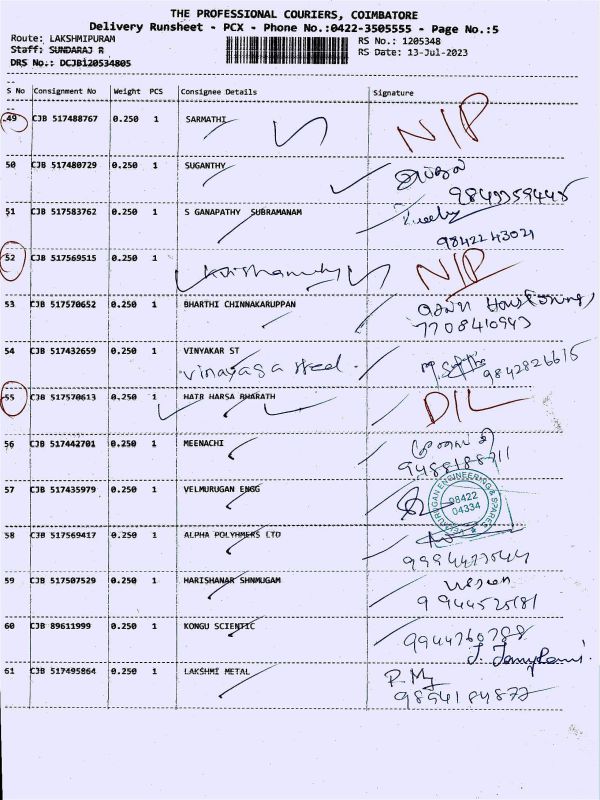 THE PROFESSIONAL COURIERS, COIMBATORE
Delivery Runsheet - PCX - Phone No.:0422-3505555 - Page No.:5
Route: LAKSHMIPURAM
RS No.: 1205348
Staff: SUNDARAJ R
RS Date: 13-Jul-2023
DRS No.: DCJB120534805
S No Consignment No Weight PCS Consignee Details Signature
49 CJB 517488767 0.250 1 SARMATHI N/P
50 CJB 517480729 0.250 1 SUGANTHY
9843359445
51 CJB 517583762 0.250 1 S GANAPATHY SUBRAMANAM
9842243021
52 CJB 517569515 0.250 1 N/P
53 CJB 517570652 0.250 1 BHARTHI CHINNAKARUPPAN
7708410943
54 CJB 517432659 0.250 1 VINYAKAR ST
vinayaga steel 9842826615
55 CJB 517570613 0.250 1 HATR HARSA BHARATH D/L
56 CJB 517442701 0.250 1 MEENACHI
9488188711
57 CJB 517435979 0.250 1 VELMURUGAN ENGG
VELMURUGAN ENGINEERING & SPARES
98422
04334
58 CJB 517569417 0.250 1 ALPHA POLYHMERS LTD
59 CJB 517507529 0.250 1 HARISHANAR SHNMUGAM
9944525181
60 CJB 89611999 0.250 1 KONGU SCIENTIC
9944760788
61 CJB 517495864 0.250 1 LAKSHMI METAL
9894184877